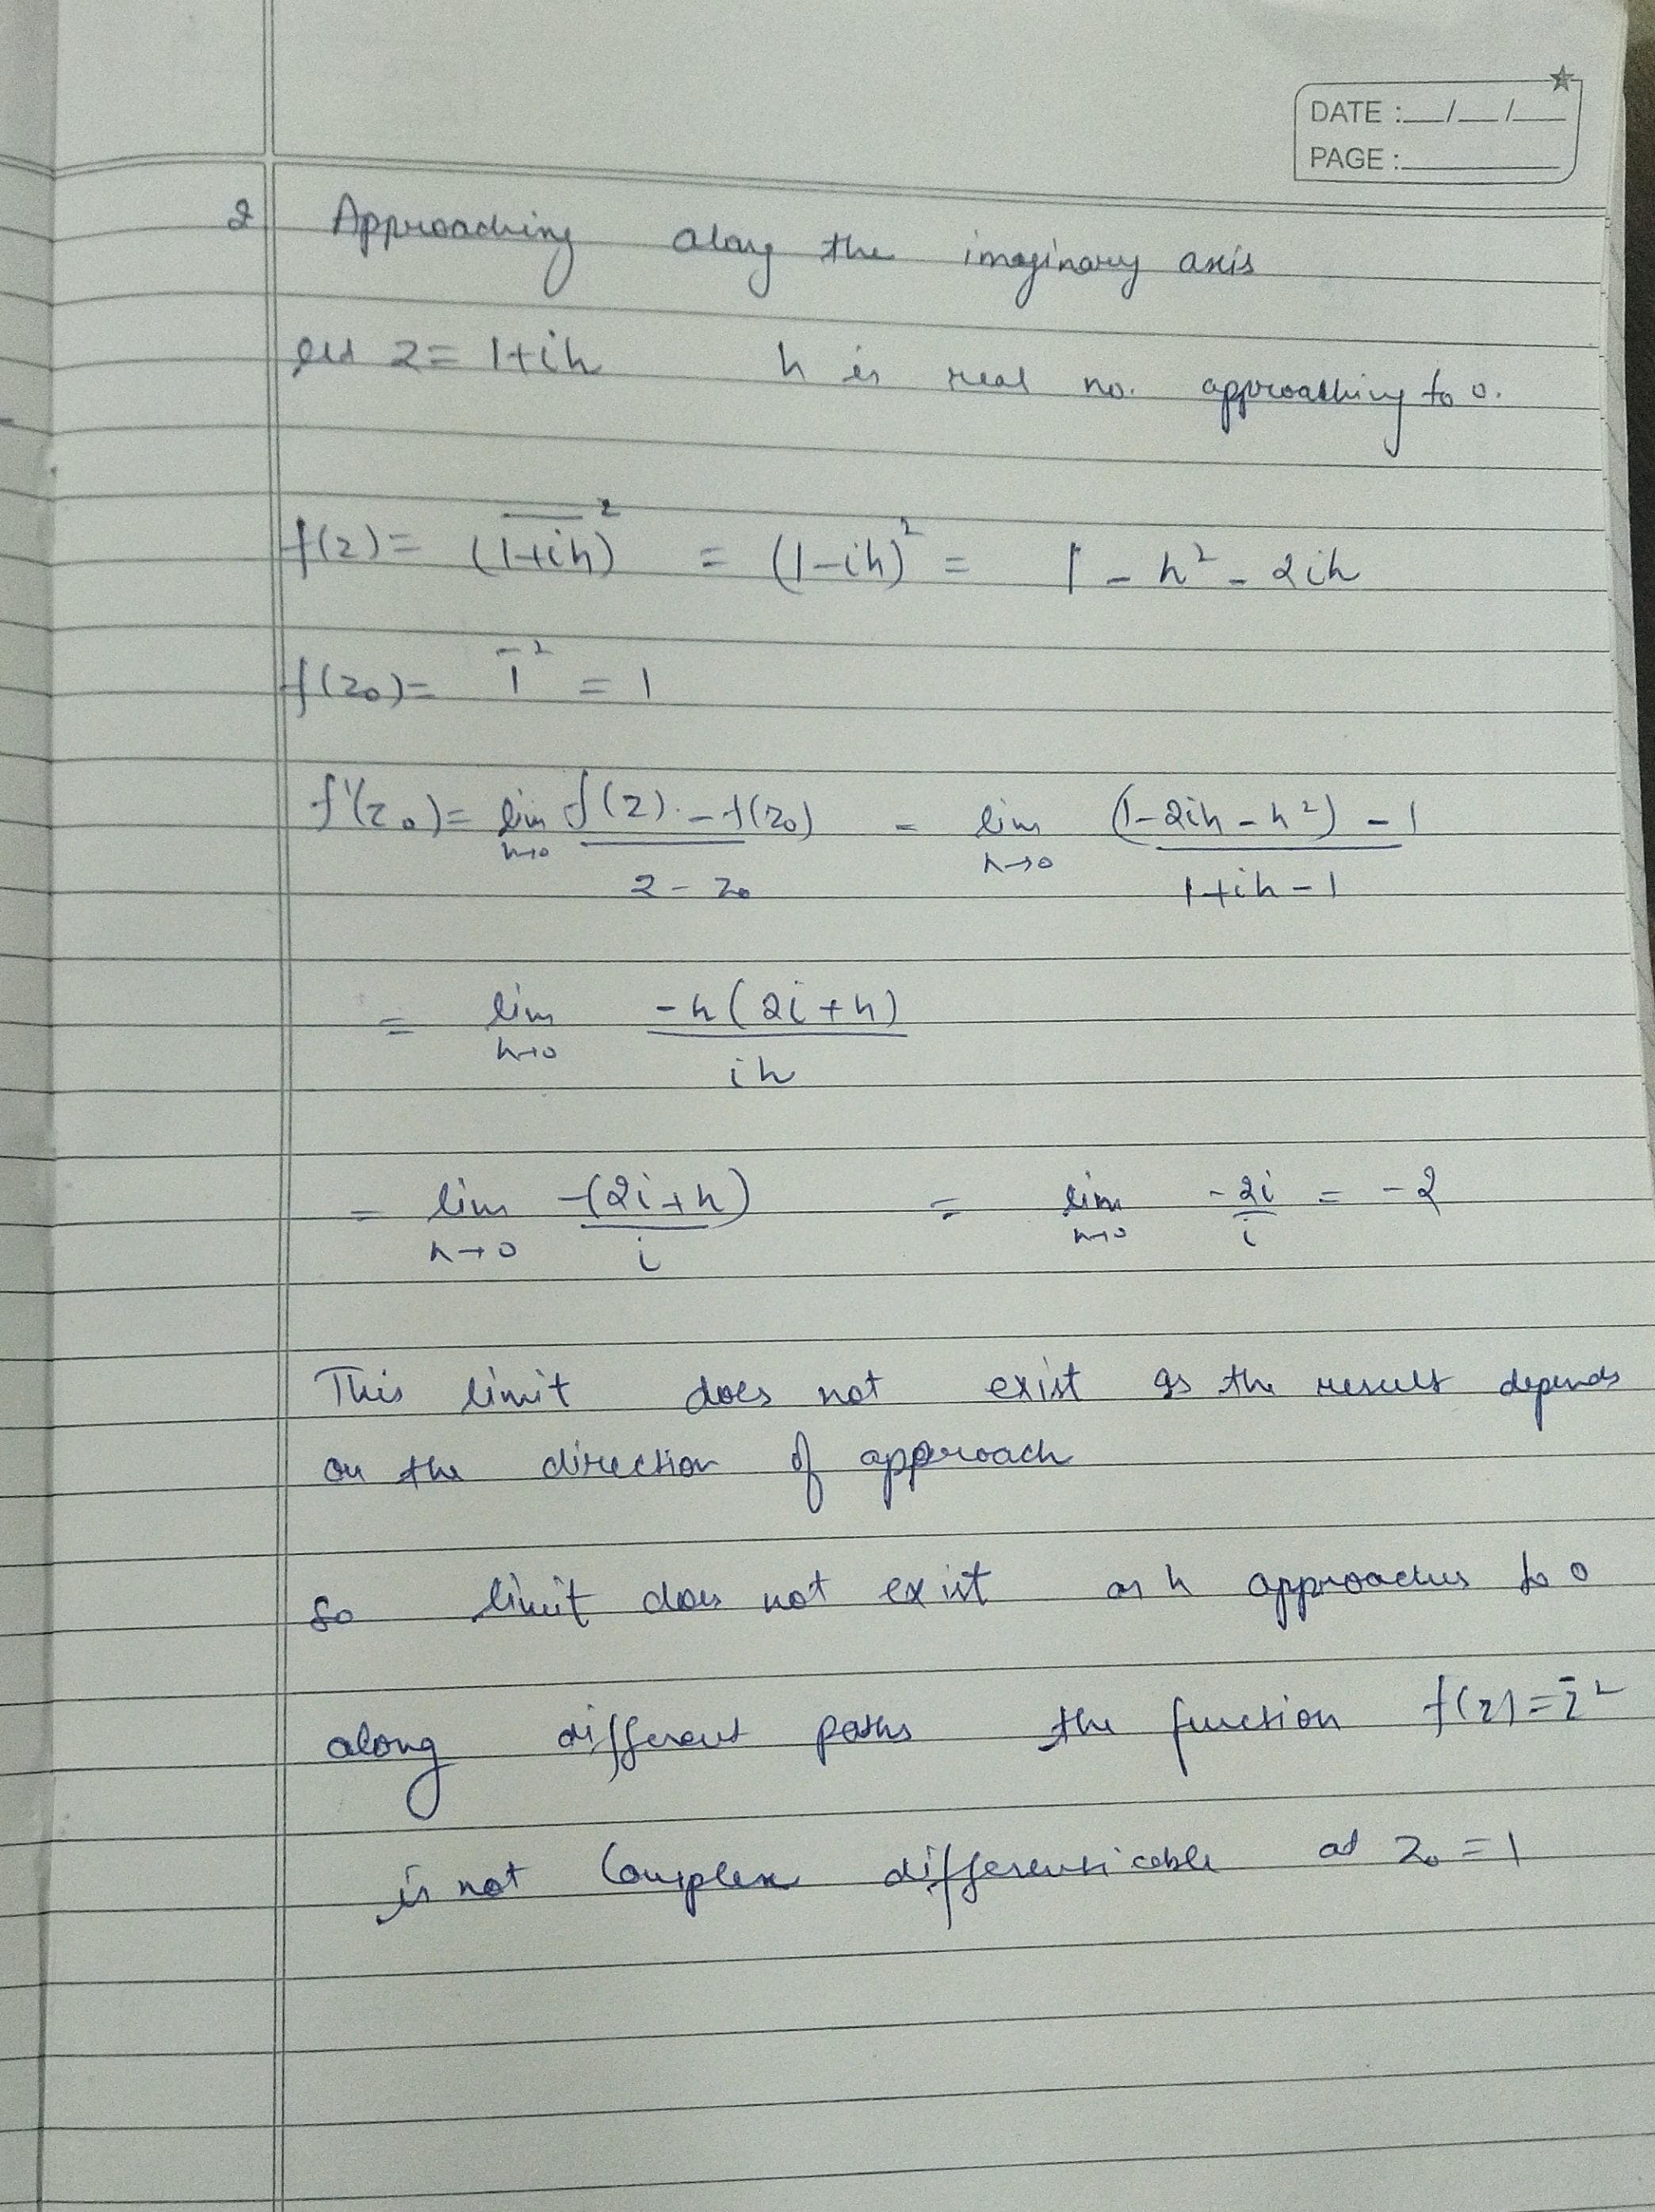 DATE :__/__/__
PAGE :________
2 Approaching along the imaginary axis
let z = 1+ih h is real no. approaching to 0.
f(z) = (\overline{1+ih})² = (1-ih)² = 1 - h² - 2ih
f(z₀) = \bar{1}² = 1
f'(z₀) = lim_{h→0} \frac{f(z) - f(z₀)}{z - z₀} = lim_{h→0} \frac{(1-2ih-h²) - 1}{1+ih-1}
= lim_{h→0} \frac{-h(2i+h)}{ih}
= lim_{h→0} \frac{-(2i+h)}{i} = lim_{h→0} \frac{-2i}{i} = -2
This limit does not exist as the result depends
on the direction of approach
So limit does not exist as h approaches to 0
along different paths the function f(z) = \bar{z}²
is not Complex differenticable at z₀ = 1